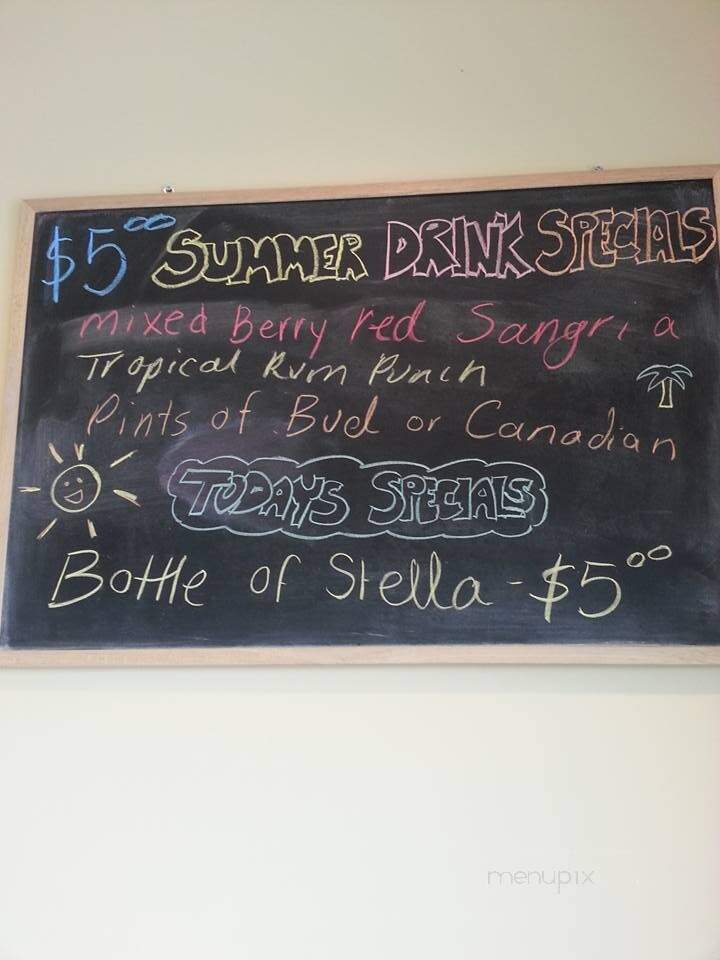 $5.00 SUMMER DRINK SPECIALS
mixed Berry red Sangria
Tropical Rum Punch
Pints of Bud or Canadian
TODAYS SPECIALS
Bottle of Stella - $5.00
menupix